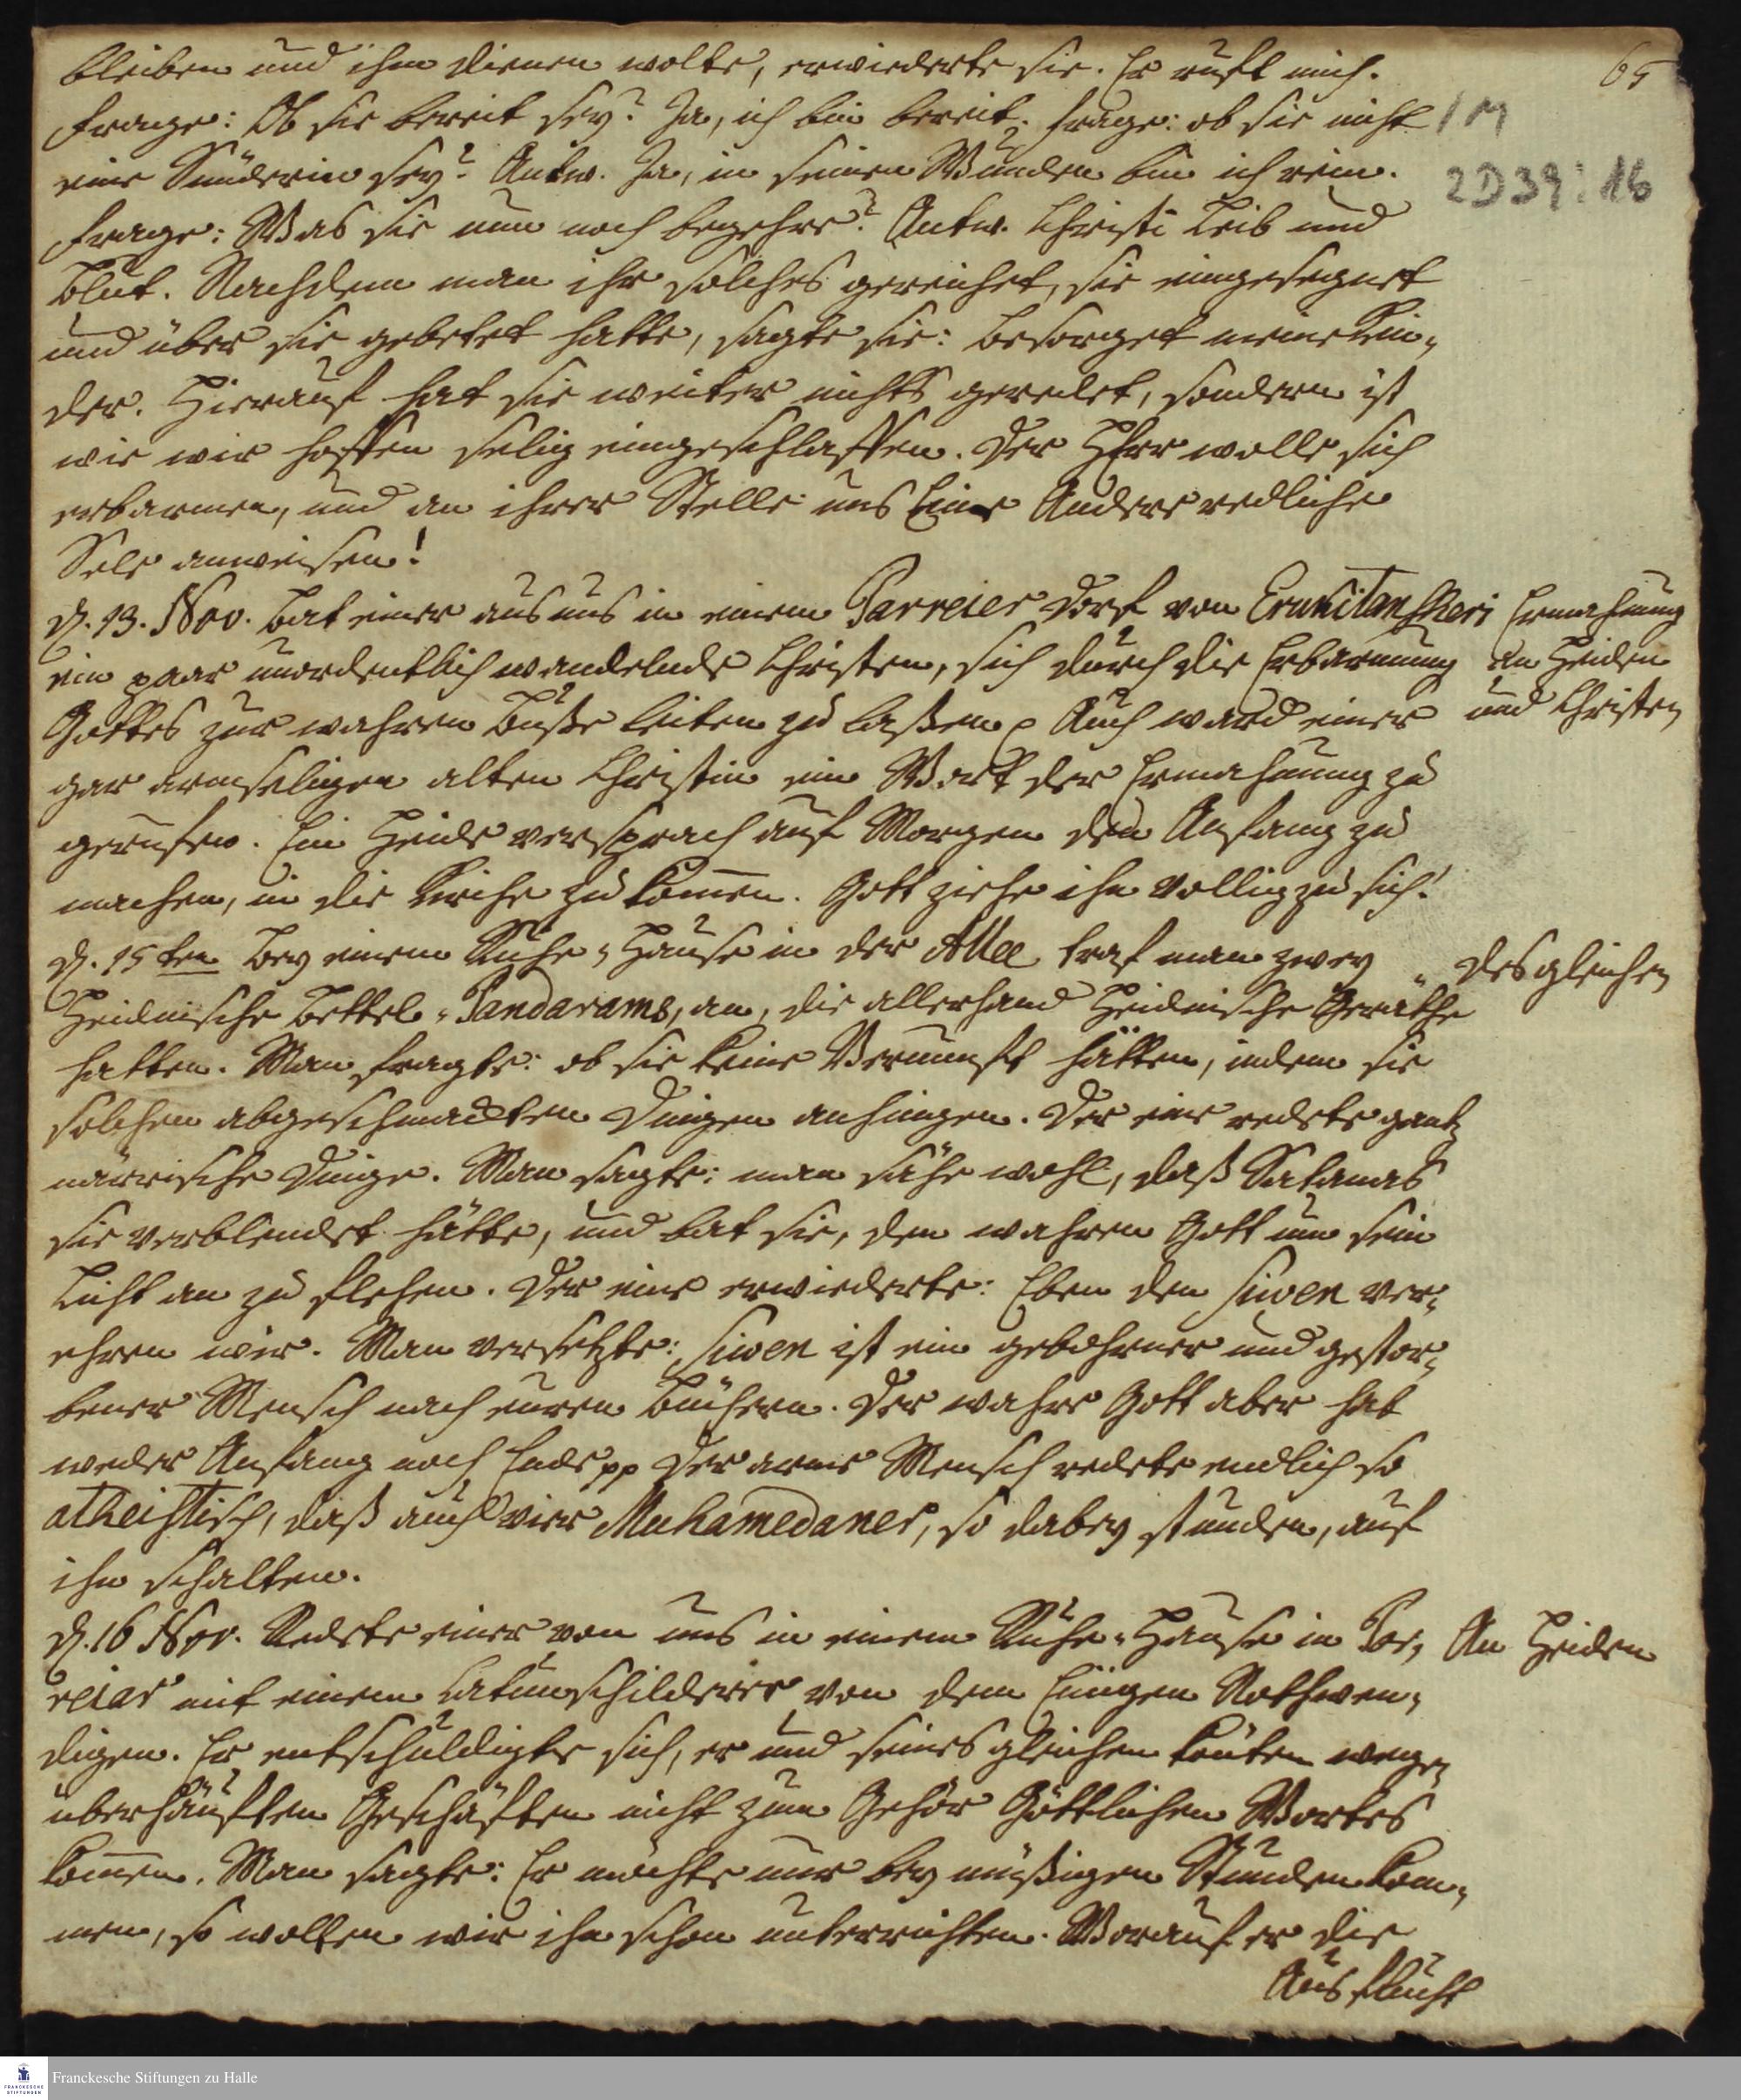 65
bleiben und ihm dienen wolte, erwiederte sie. Er ruft mich.
Frage: Ob sie bereit sey? Ja, ich bin bereit. Frage: ob sie nicht
1 M
eine Sünderin sey? Antw. Ja, in seinen Wunden bin ich rein.
2D39:16
Frage: Was sie nun noch begehre? Antw. Christi Leib und
Blut. Nachdem man ihr solches gereichet, sie eingesegnet
und über sie gebetet hatte, sagte sie: besorget meine Kin-
der. Hierauf hat sie weiter nichts geredet, sondern ist
wie wir hoffen selig eingeschlaffen. Der HErr wolle sich
erbarmen, und an ihrer Stelle uns Eine Andere redliche
Sele anweisen!
d. 13. Nov. bat einer aus uns in einem Parreier Dorf von Erukitancheri
Ermahnung
ein paar unordentlich wandelnde Christen, sich durch die Erbarmung
an Heiden
Gottes zur wahren Buße leiten zu laßen p Auch ward einer
und Christen
gar armseligen alten Christin ein Wort der Ermahnung zu
gerufen. Ein Heide versprach auf Morgen den Anfang zu
machen, in die Kirche zu kommen. Gott ziehe ihn völlig zu sich!
d. 15ten Bey einem Ruhe-Hause in der Allee traf man zwey
desgleichen
Heidnische Bettel-Pandarams, an, die allerhand Heidnische Geräthe
hatten. Man fragte: ob sie keine Vernunft hätten, indem sie
solchen abgeschmackten Dingen anhingen. Der eine redete gantz
närrische Dinge. Man sagte: man sähe wohl, daß Satanas
sie verblendet hätte, und bat sie, den wahren Gott um sein
Licht an zu flehen. Der eine erwiederte: Eben den Siwen ver-
ehren wir. Man versetzte: Siwen ist ein gebohrner und gestor-
bener Mensch nach euren Büchern. Der wahre Gott aber hat
weder Anfang noch Ende pp Der arme Mensch redete endlich so
atheistisch, daß auch vier Muhamedaner, so dabey stunden, auf
ihn schalten.
d. 16 Nov. Redete einer von uns in einem Ruhe-Hause in Por-
An Heiden
reiar mit einem Catunschilderer von dem Einigen Nothwen-
digen. Er entschuldigte sich, er und seines gleichen könten wegen
überhäuften Geschäften nicht zum Gehör Göttlichen Wortes
kommen. Man sagte: Er möchte nur bey müßigen Stunden kom-
men, so wollen wir ihn schon unterrichten. Worauf er die
Ausflucht
FRANCKESCHE
STIFTUNGEN
Franckesche Stiftungen zu Halle